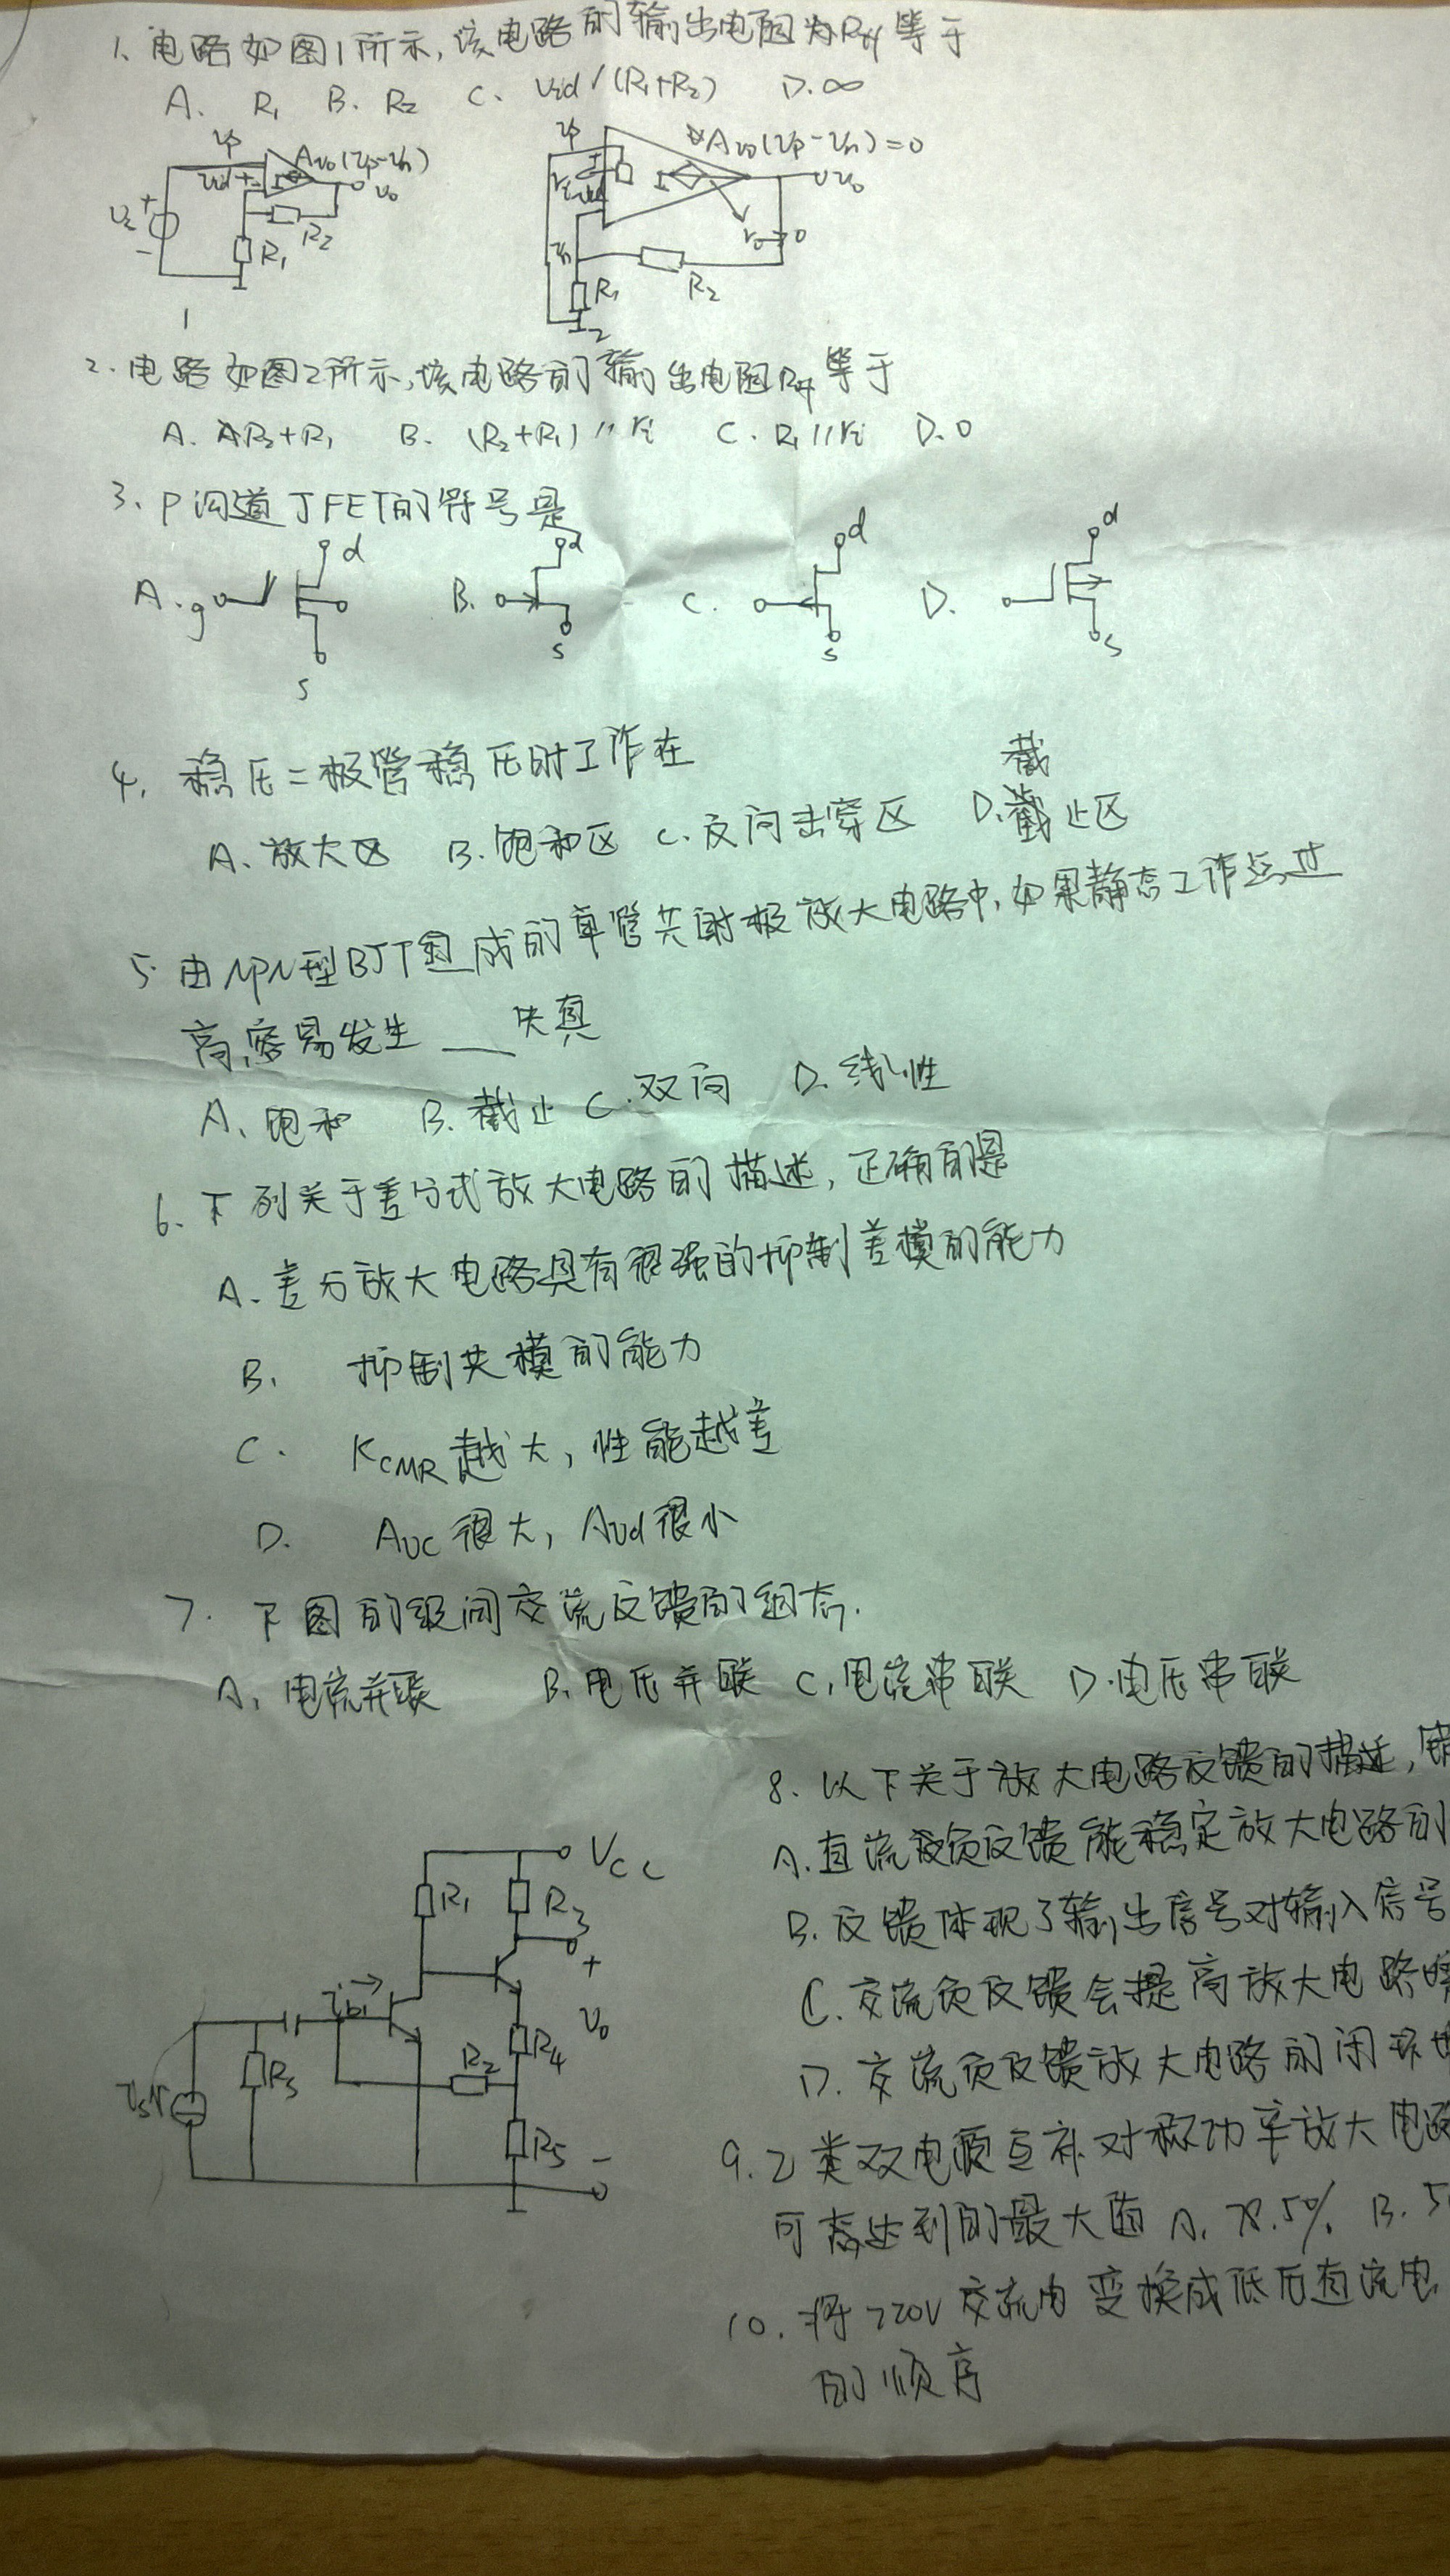 1. 电路如图1所示,该电路的输出电阻为Rif等于
A. R1 B. R2 C. Vid/(R1+R2) D.∞
vp Avo(vp-vn) vid + - vo R2 R1 1
vp Avo(vp-vn)=0 ri vo vn ro→0 R1 R2 2
2.电路如图2所示,该电路的输出电阻Rif等于
A. R2+R1 B. (R2+R1)//ri C. R1//ri D.0
3、P沟道JFET的符号是
A. g d s B. d s C. d s D. d s
4. 稳压二极管稳压时工作在
截
A、放大区 B.饱和区 C.反向击穿区 D.截止区
5 由NPN型BJT组成的单管共射极放大电路中,如果静态工作点过
高,容易发生 __ 失真
A、饱和 B.截止 C.双向 D.线性
6、下列关于差分式放大电路的描述,正确的是
A.差分放大电路具有很强的抑制差模的能力
B. 抑制共模的能力
C. KCMR越大,性能越差
D. AUC很大,AUd很小
7. 下图的级间交流反馈的组态.
A、电流并联 B.电压并联 C.电流串联 D.电压串联
8. 以下关于放大电路反馈的描述,
A.直流负反馈能稳定放大电路的
B.反馈体现了输出信号对输入信号
C.交流负反馈会提高放大电路
D.交流负反馈放大电路的闭环
VCC R1 R3 + vo ib1 R4 R2 R5 -
9.乙类双电源互补对称功率放大电路
可能达到的最大值 A. 78.5% B. 5
10. 将220V交流电变换成低压直流电
的顺序